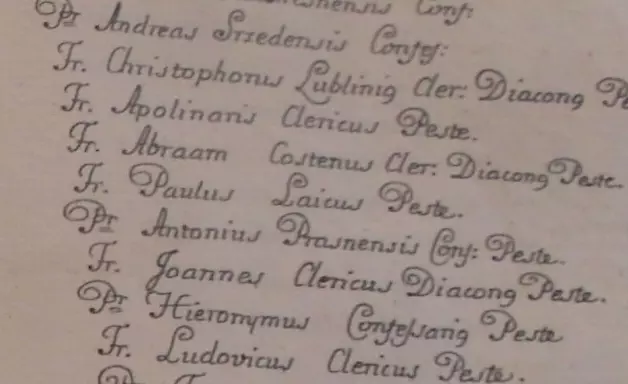 Conf:
Pr Andreas Srzedensis Confes:
Fr. Christophorus Lublinig Cler: Diacong Pe
Fr. Apolinaris Clericus Peste.
Fr. Abraam Costenus Cler: Diacong Peste.
Fr. Paulus Laicus Peste.
Pr Antonius Prasnensis Conf: Peste.
Fr. Joannes Clericus Diacong Peste.
Pr Hieronymus Confessarig Peste
Fr. Ludovicus Clericus Peste.